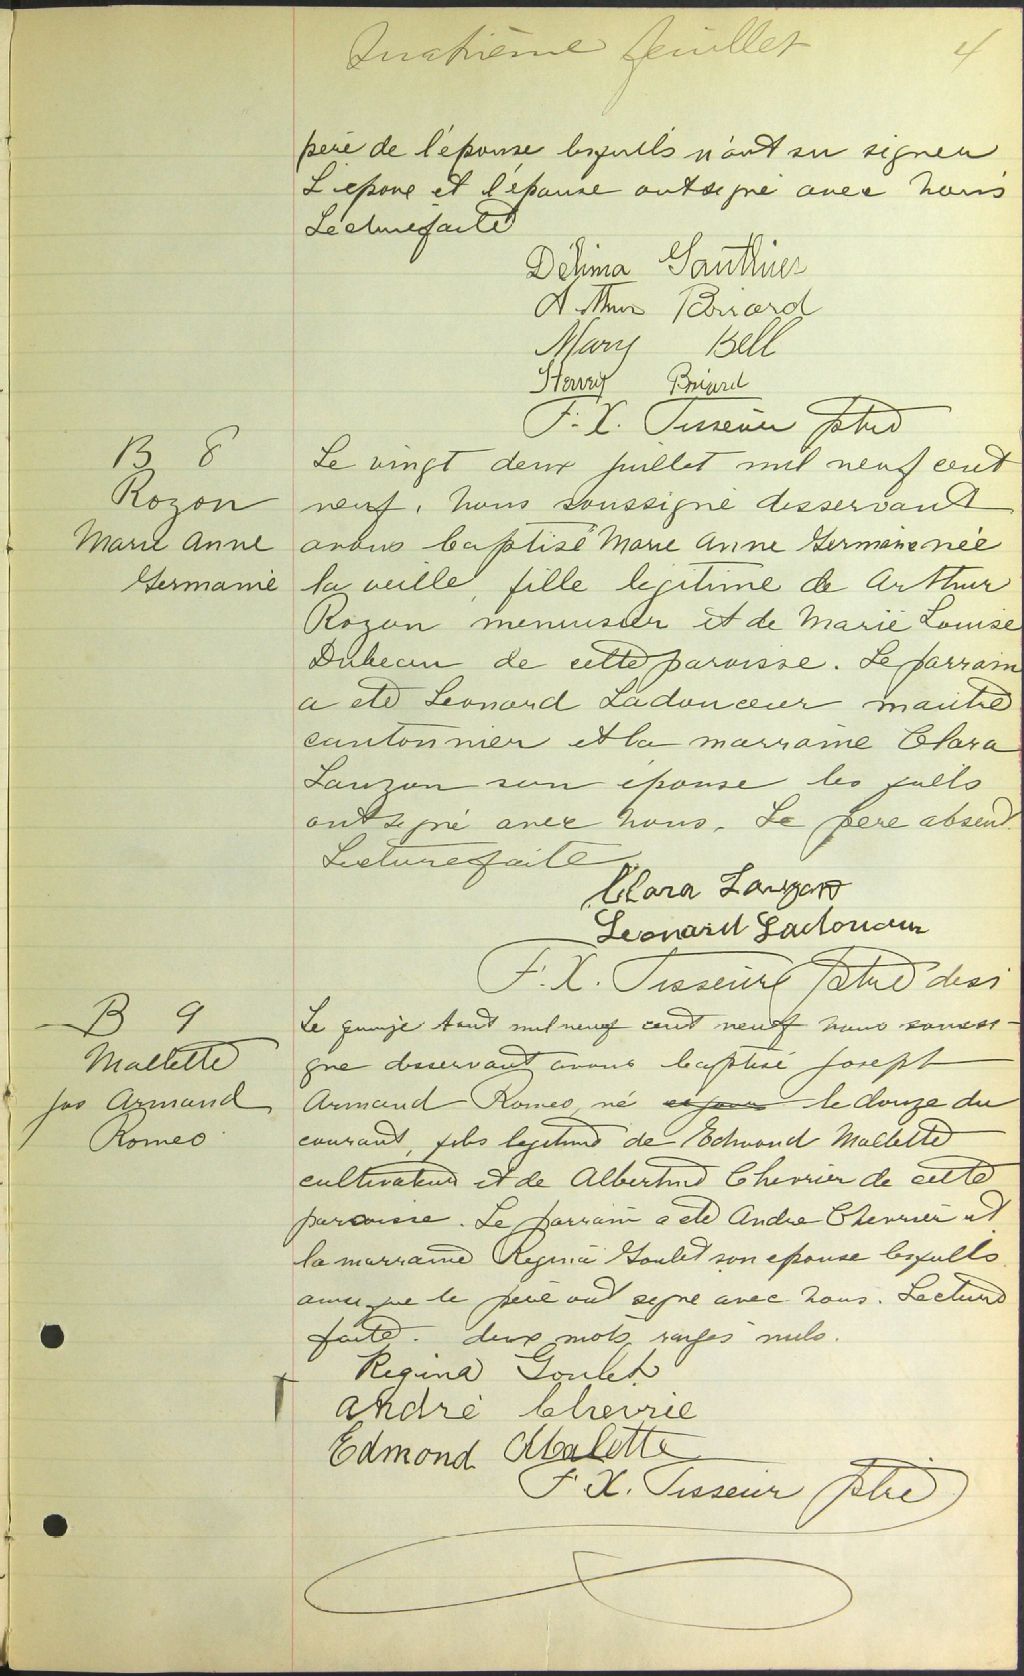 Quatrième feuillet 4
père de l'épouse lesquels n'ont su signer
L'epoux et l'épouse ont signé avec nous
Lecture faite
Délima Gauthier
Arthur Briard
Mary Bell
Henry Briard
F. X. Tisseur ptre
B 8
Rozon
Marie Anne
Germaine
Le vingt deux juillet mil neuf cent
neuf, nous soussigné desservant
avons baptisé Marie Anne Germaine née
la veille, fille legitime de Arthur
Rozon menuisier et de Marie Louise
Dubeau de cette paroisse. Le parrain
a été Leonard Ladouceur maitre
cantonnier et la marraine Clara
Lauzon son épouse les quels
ont signé avec nous. Le père absent.
Lecture faite
Clara Lauzon
Leonard Ladouceur
F. X. Tisseur ptre dess
B 9
Mallette
Jos Armand
Romeo
Le quinze Aout mil neuf cent neuf nous soussi-
gne desservant avons baptisé Joseph
Armand Romeo, né ce jour le douze du
courant, fils legitime de Edmond Mallette
cultivateur et de Albertine Chevrier de cette
paroisse. Le parrain a été Andre Chevrier et
la marraine Regina Goulet son epouse lesquels
ainsi que le père ont signe avec nous. Lecture
faite. deux mots rayés nuls.
Regina Goulet
André Chevrie
Edmond Malette
F. X. Tisseur ptre